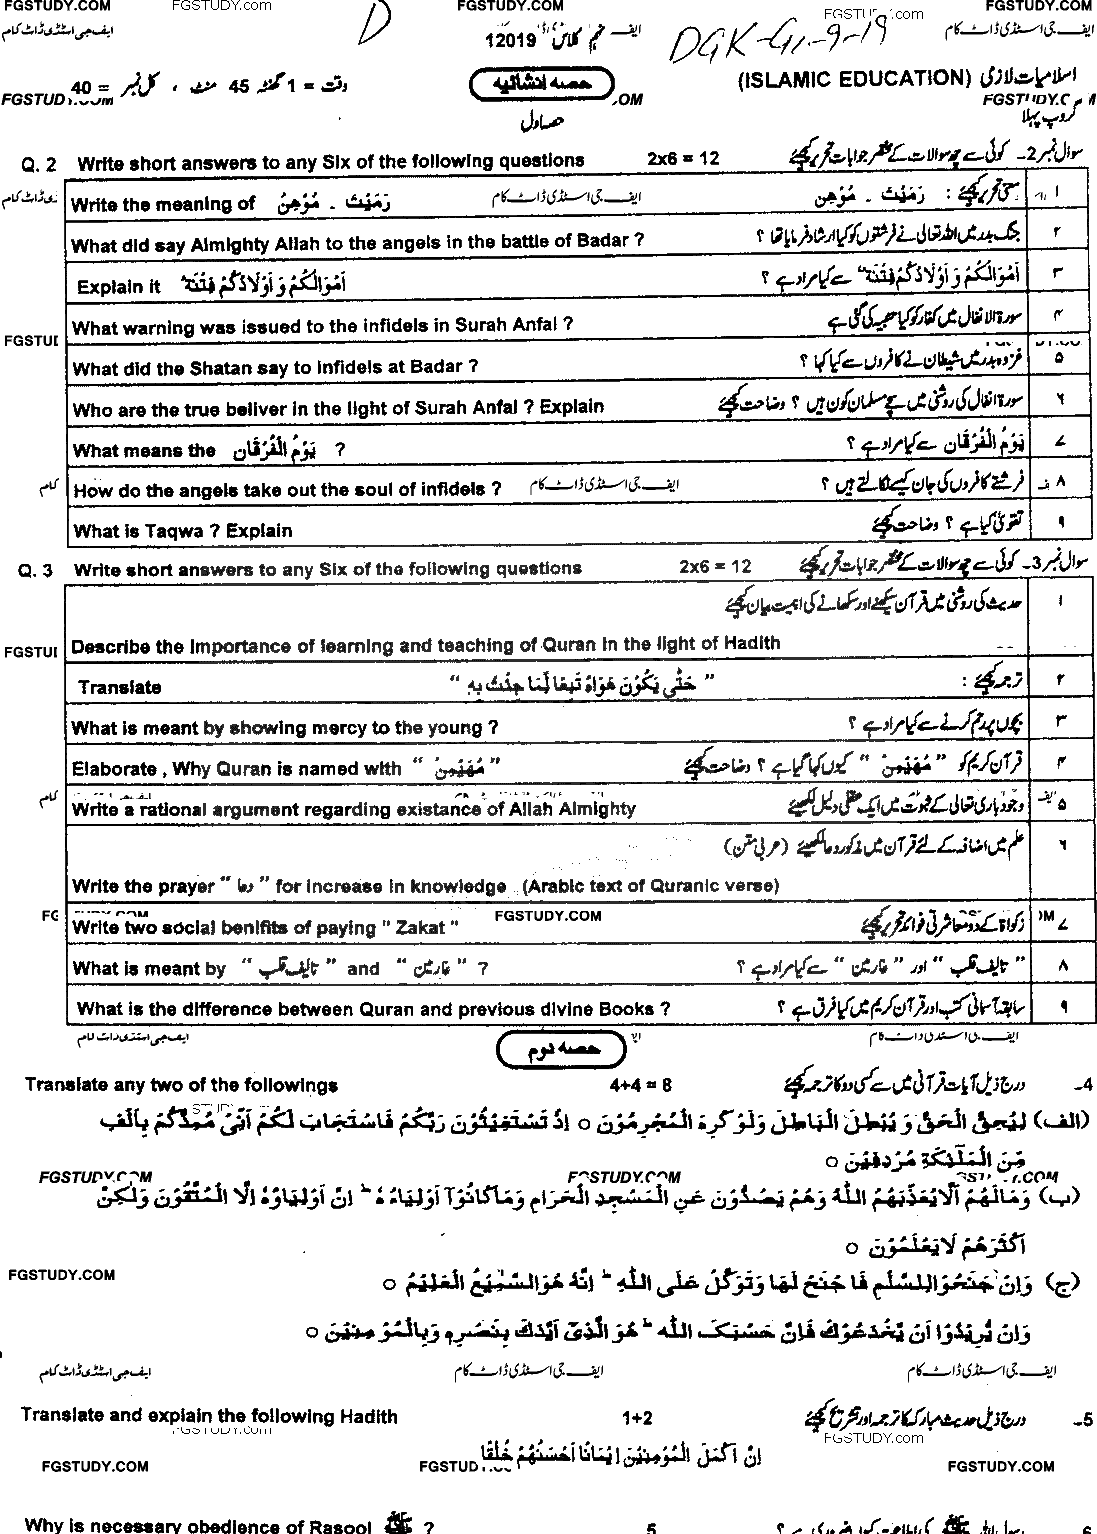 FGSTUDY.COM FGSTUDY.COM FGSTUDY.COM FGSTUDY.com FGSTUDY.COM
ایف جی اسٹڈی ڈاٹ کام D 12019 نہم کلاس ایف DGK-G1-9-19 ایف جی اسٹڈی ڈاٹ کام
اسلامیات لازمی (ISLAMIC EDUCATION) حصہ انشائیہ وقت = 1 گھنٹہ 45 منٹ ، کل نمبر = 40
FGSTUDY.COM OM FGSTUDY.C M
گروپ پہلا
حصہ اول
Q. 2 Write short answers to any Six of the following questions 2x6 = 12 سوال نمبر 2۔ کوئی سے چھ سوالات کے مختصر جوابات تحریر کیجئے
Write the meaning of رَمَيْتَ ۔ مُوْهِنُ ایف جی اسٹڈی ڈاٹ کام معنی تحریر کیجئے : رَمَيْتَ ۔ مُوْهِنُ ۱
What did say Almighty Allah to the angels in the battle of Badar ? جنگ بدر میں اللہ تعالیٰ نے فرشتوں کو کیا ارشاد فرمایا تھا ؟ ۲
Explain it اَمْوَالُكُمْ وَ اَوْلَادُكُمْ فِتْنَةٌ اَمْوَالُكُمْ وَ اَوْلَادُكُمْ فِتْنَةٌ سے کیا مراد ہے ؟ ۳
What warning was issued to the infidels in Surah Anfal ? سورۃ الانفال میں کفار کو کیا تنبیہ کی گئی ہے ۴
FGSTUI
What did the Shatan say to infidels at Badar ? غزوہ بدر میں شیطان نے کافروں سے کیا کہا ؟ ۵
Who are the true beliver in the light of Surah Anfal ? Explain سورۃ انفال کی روشنی میں سچے مسلمان کون ہیں ؟ وضاحت کیجئے ۶
What means the يَوْمُ الْفُرْقَانِ ? يَوْمُ الْفُرْقَانِ سے کیا مراد ہے ؟ ۷
کام How do the angels take out the soul of infidels ? ایف جی اسٹڈی ڈاٹ کام فرشتے کافروں کی جان کیسے نکالتے ہیں ؟ ۸
What is Taqwa ? Explain تقویٰ کیا ہے ؟ وضاحت کیجئے ۹
Q. 3 Write short answers to any Six of the following questions 2x6 = 12 سوال نمبر 3۔ کوئی سے چھ سوالات کے مختصر جوابات تحریر کیجئے
حدیث کی روشنی میں قرآن سیکھنے اور سکھانے کی اہمیت بیان کیجئے ۱
FGSTUI Describe the importance of learning and teaching of Quran in the light of Hadith
Translate " حَتّٰى يَكُوْنَ هَوَاهُ تَبِعًا لِّمَا جِئْتُ بِهٖ " ترجمہ کیجئے : ۲
What is meant by showing mercy to the young ? بچوں پر رحم کرنے سے کیا مراد ہے ؟ ۳
Elaborate , Why Quran is named with " مُهَيْمِنْ " قرآن کریم کو " مُهَيْمِنْ " کیوں کہا گیا ہے ؟ وضاحت کیجئے ۴
کام Write a rational argument regarding existance of Allah Almighty وجود باری تعالیٰ کے ثبوت میں ایک عقلی دلیل لکھیئے ۵
علم میں اضافہ کے لئے قرآن میں مذکور دعا لکھیئے (عربی متن) ۶
Write the prayer " دعا " for increase in knowledge (Arabic text of Quranic verse)
FG FGSTUDY.COM
Write two social benifits of paying " Zakat " زکوٰۃ کے دو معاشرتی فوائد تحریر کیجئے ۷
What is meant by " تالیف قلب " and " غارمین " ? " تالیف قلب " اور " غارمین " سے کیا مراد ہے ؟ ۸
What is the difference between Quran and previous divine Books ? سابقہ آسمانی کتب اور قرآن کریم میں کیا فرق ہے ؟ ۹
ایف جی اسٹڈی ڈاٹ کام حصہ دوم ایف جی اسٹڈی ڈاٹ کام
Translate any two of the followings 4+4 = 8 درج ذیل آیات قرآنی میں سے کسی دو کا ترجمہ کیجئے 4۔
(الف) لِيُحِقَّ الْحَقَّ وَ يُبْطِلَ الْبَاطِلَ وَلَوْ كَرِهَ الْمُجْرِمُوْنَ ○ اِذْ تَسْتَغِيْثُوْنَ رَبَّكُمْ فَاسْتَجَابَ لَكُمْ اَنِّىْ مُمِدُّكُمْ بِاَلْفٍ
مِّنَ الْمَلٰٓئِكَةِ مُرْدِفِيْنَ ○
FGSTUDY.COM FGSTUDY.COM
(ب) وَمَالَهُمْ اَلَّا يُعَذِّبَهُمُ اللّٰهُ وَهُمْ يَصُدُّوْنَ عَنِ الْمَسْجِدِ الْحَرَامِ وَمَا كَانُوْٓا اَوْلِيَآءَهٗ ط اِنْ اَوْلِيَآؤُهٗ اِلَّا الْمُتَّقُوْنَ وَلٰكِنَّ
اَكْثَرَهُمْ لَا يَعْلَمُوْنَ ○
FGSTUDY.COM (ج) وَاِنْ جَنَحُوْا لِلسَّلْمِ فَا جْنَحْ لَهَا وَتَوَكَّلْ عَلَى اللّٰهِ ط اِنَّهٗ هُوَ السَّمِيْعُ الْعَلِيْمُ ○
وَاِنْ يُّرِيْدُوْٓا اَنْ يَّخْدَعُوْكَ فَاِنَّ حَسْبَكَ اللّٰهُ ط هُوَ الَّذِىْٓ اَيَّدَكَ بِنَصْرِهٖ وَبِالْمُؤْمِنِيْنَ ○
ایف جی اسٹڈی ڈاٹ کام ایف جی اسٹڈی ڈاٹ کام ایف جی اسٹڈی ڈاٹ کام
Translate and explain the following Hadith 1+2 درج ذیل حدیث مبارکہ کا ترجمہ اور تشریح کیجئے 5۔
FGSTUDY.com FGSTUDY.com
FGSTUDY.COM FGSTUD اِنَّ اَكْمَلَ الْمُؤْمِنِيْنَ اِيْمَانًا اَحْسَنُهُمْ خُلُقًا FGSTUDY.COM
Why is necessary obedience of Rasool ﷺ ? 5 رسول اللہ ﷺ کی اطاعت کیوں ضروری ہے ؟ 6۔